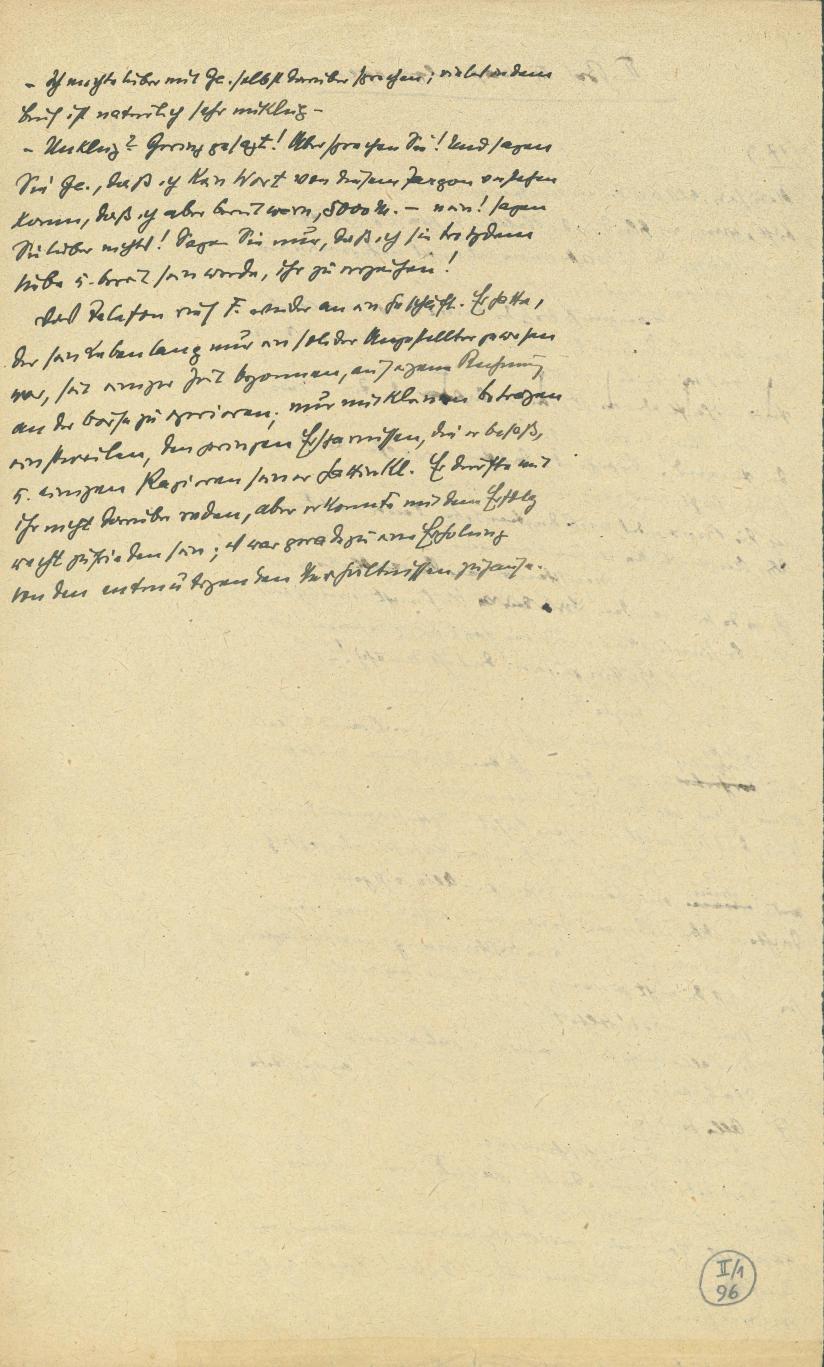 - Ich möchte lieber mit Ge. selbst darüber sprechen; vieles in dem
Brief ist natürlich sehr unklug -
- Unklug? Gering gesagt! Aber sprechen Sie! Und sagen
Sie Ge., daß ich kein Wort von diesem Jargon verstehen
kann, daß ich aber bereit wäre, 5000 M. - nein! sagen
Sie lieber nichts! Sagen Sie nur, daß ich sie trotzdem
liebe u. bereit sein werde, ihr zu verzeihen!
Das Telefon rief F. wieder an ein Geschäft. Er hatte,
der sein Leben lang nur ein solider Angestellter gewesen
war, seit einiger Zeit begonnen, auf eigene Rechnung
an der Börse zu operieren; nur mit kleinen Beträgen
einstweilen, den geringen Ersparnissen, die er besaß,
u. einigen Papieren seiner Gattin Kl. Er durfte mit
ihr nicht darüber reden, aber er konnte mit dem Erfolg
recht zufrieden sein; es war geradezu eine Erholung
von den entmutigenden Verhältnissen zuhause.
II/1
96